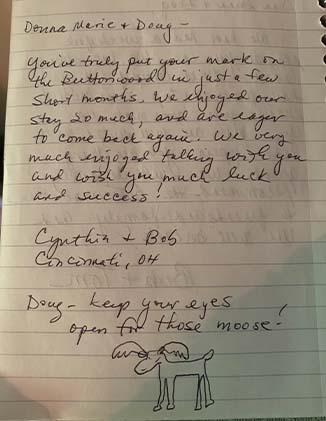 Donna Marie + Doug -
You've truly put your mark on
the Buttonwood in just a few
short months. We enjoyed our
stay so much, and are eager
to come back again. We very
much enjoyed talking with you
and wish you much luck
and success!
Cynthia + Bob
Cincinnati, OH
Doug - keep your eyes
open for those moose!